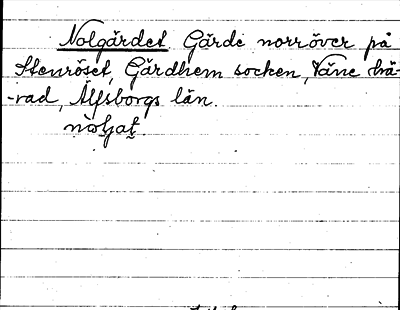 Nolgärdet. Gärde norröver på
Stenröset, Gärdhem socken, Väne hä-
-rad, Älfsborgs län.